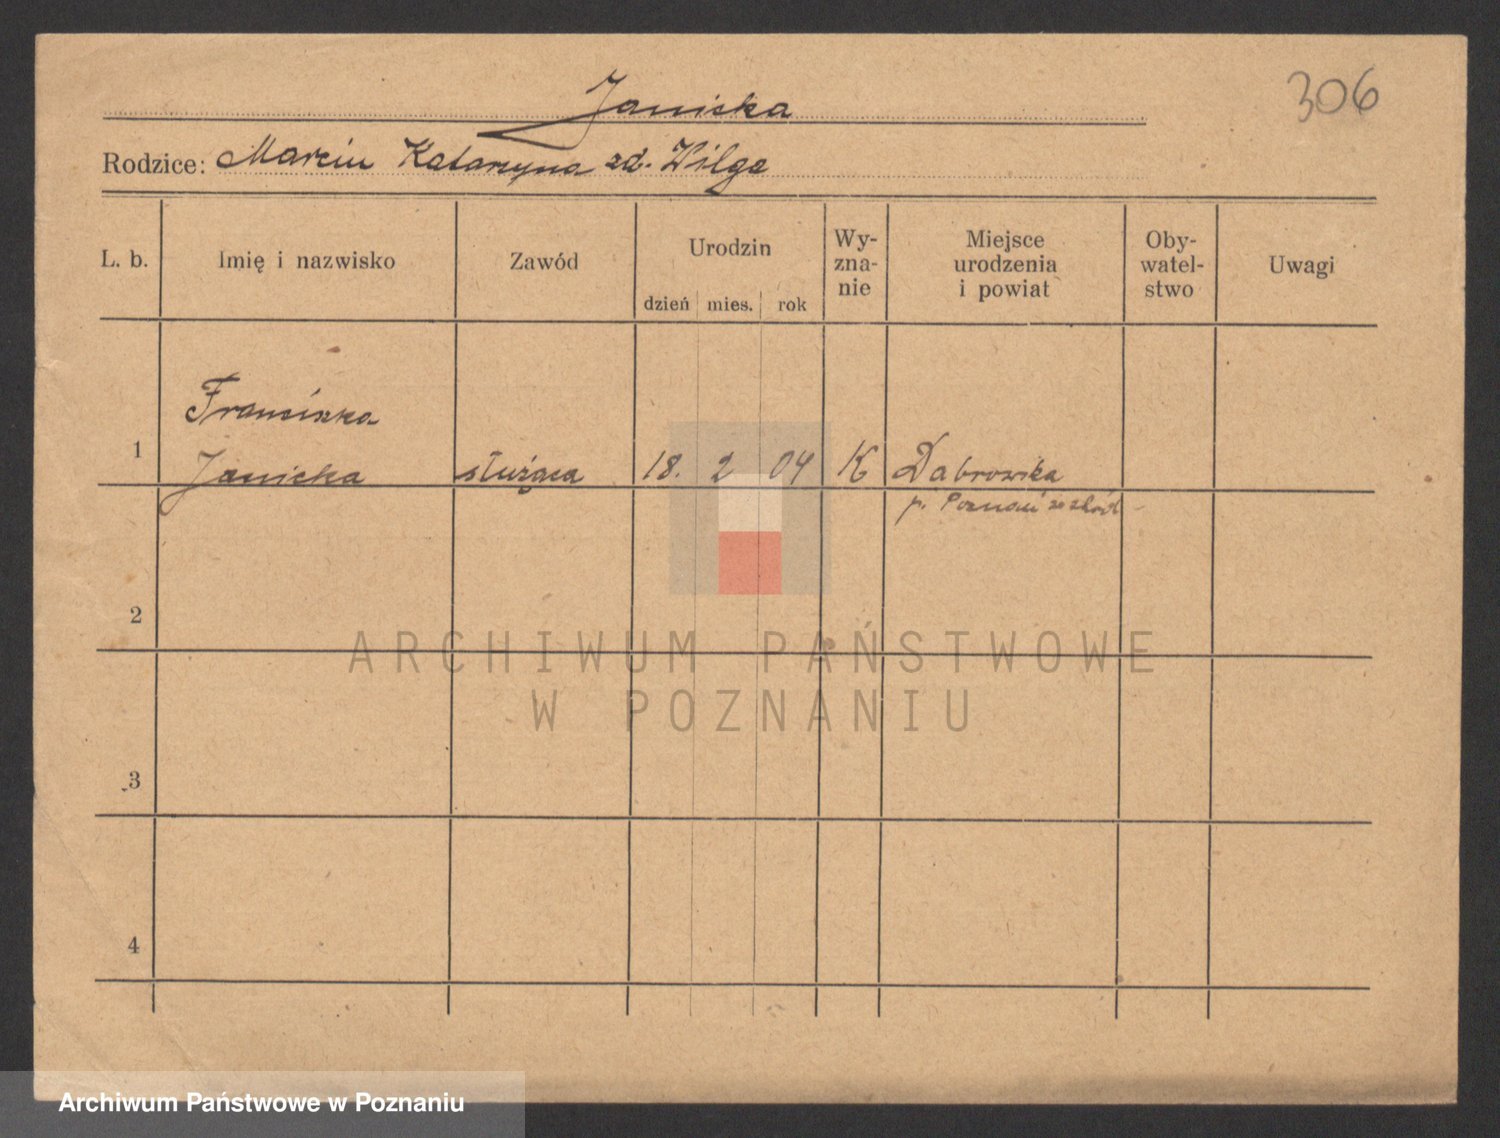 306
Janicka
Rodzice: Marcin Katarzyna zd. Wilga
L. b. Imię i nazwisko Zawód Urodzin dzień mies. rok Wy-zna-nie Miejsce urodzenia i powiat Oby-watel-stwo Uwagi
Franciszka
1 Janicka służąca 18. 2 04 K Dabrowka
p. Poznań zachód
2
3
4
ARCHIWUM PAŃSTWOWE
W POZNANIU
Archiwum Państwowe w Poznaniu